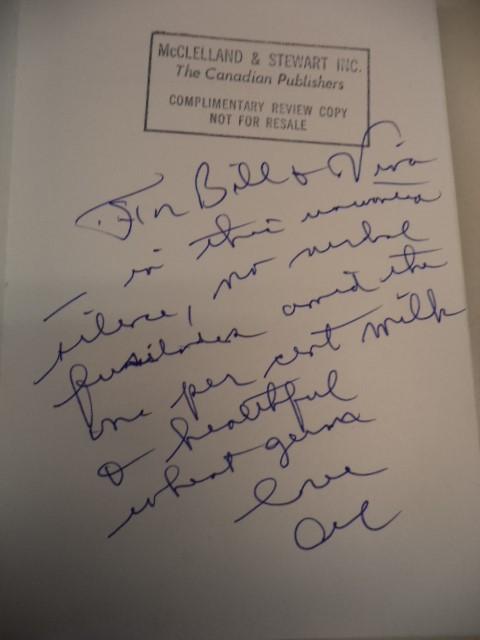 McCLELLAND & STEWART INC.
The Canadian Publishers
COMPLIMENTARY REVIEW COPY
NOT FOR RESALE
For Bill &
— in their
silence, no verbal
fusilades amid the
one per cent milk
& healthful
wheat germ
love
Al